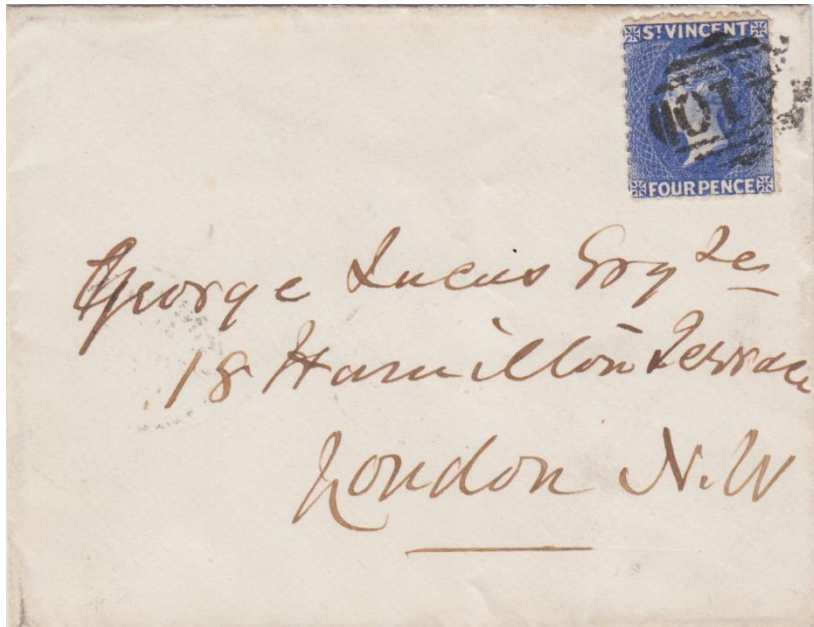 ST VINCENT
A10
FOUR PENCE
George Lucas Esqre
18 Hamilton Terrace
London N.W